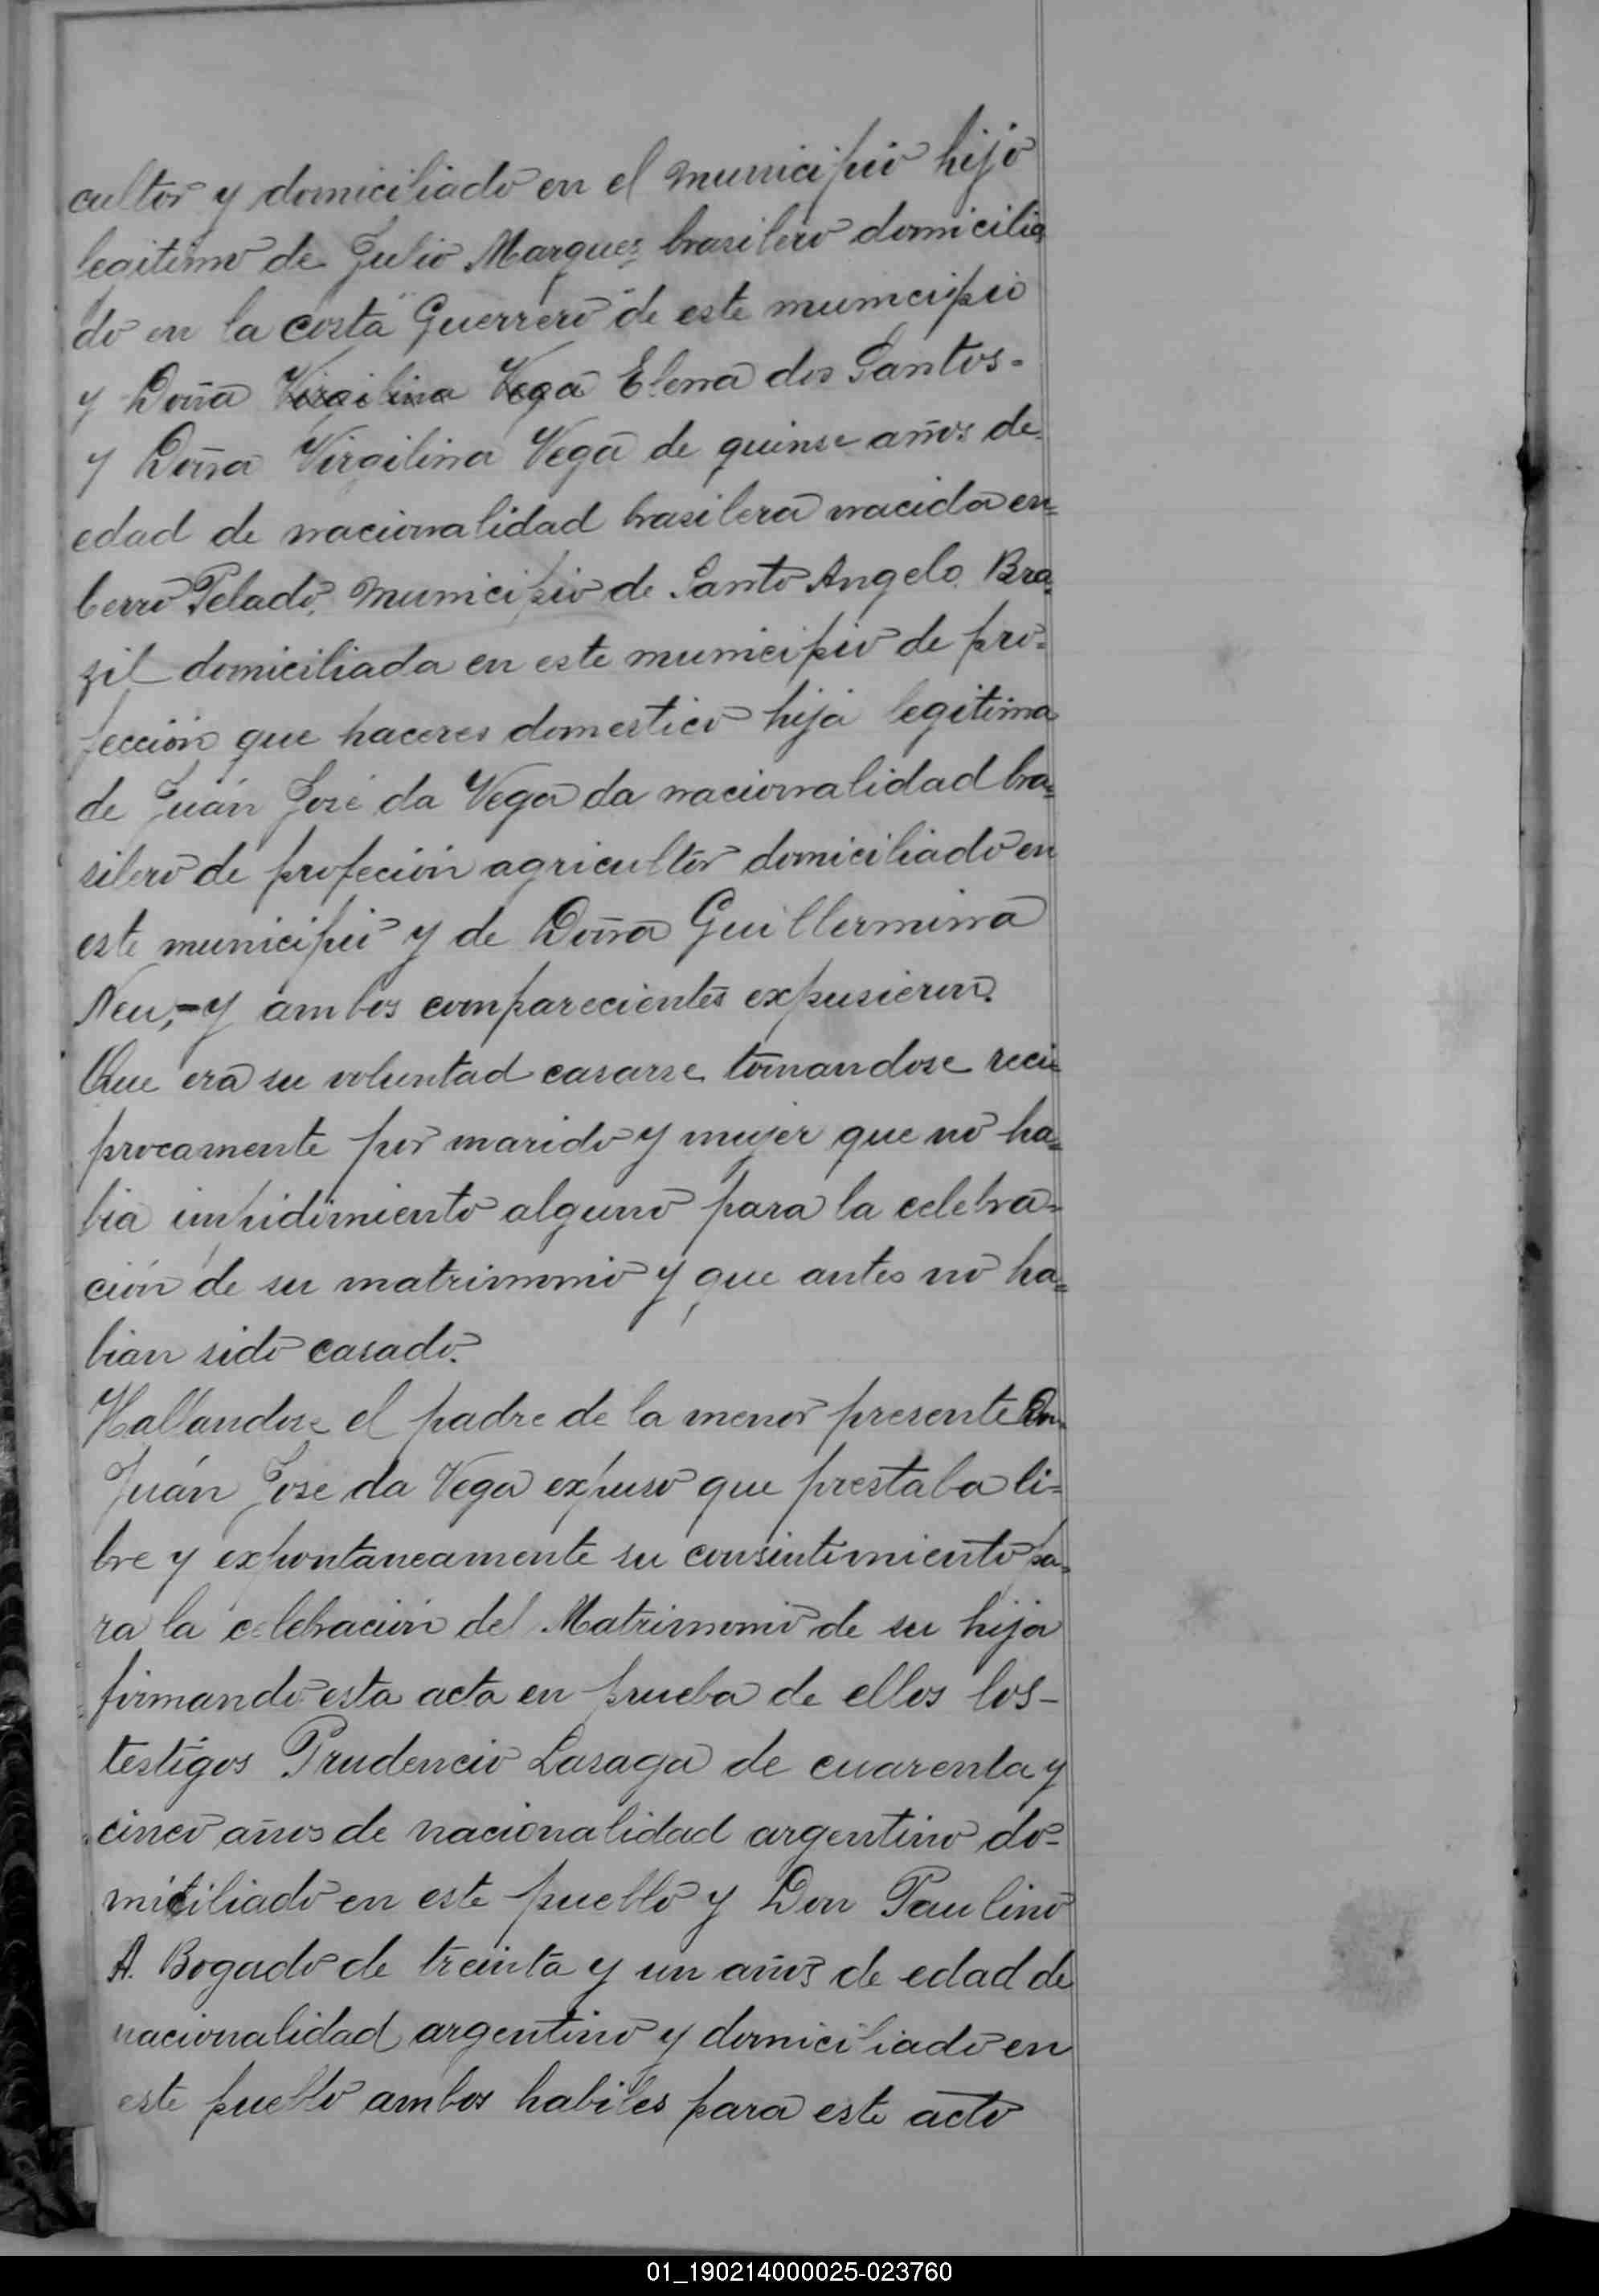 cultor y domiciliado en el municipio hijo
legitimo de Julio Marquez brasilero domicilia
do en la costa "Guerrero" de este municipio
y Doña Virgilina Vega Elena dos Santos-
y Doña Virgilina Vega de quinse años de-
edad de nacionalidad brasilera nacida en=
Cerro Pelado, Municipio de Santo Angelo. Bra=
zil domiciliada en este municipio de pro=
fección que haceres domestico hija legitima
de Juán José da Vega da nacionalidad bra=
silero de profeción agricultor domiciliado en
este municipio y de Doña Guillermina
Neu,=y ambos comparecientes expusieron.
Que era su voluntad casarse tomandose reci
procamente por marido y mujer que no ha=
bia impidimiento alguno para la celebra=
ción de su matrimonio y que antes no ha=
bian sido casado.
Hallandose el padre de la menor presente Dn.
Juán José da Vega expuso que prestaba li=
bre y expontaneamente su consintimiento pa=
ra la celebración del Matrimonio de su hija
firmando esta acta en prueba de ellos los-
testigos Prudencio Lasaga de cuarenta y
cinco años de nacionalidad argentino do=
miciliado en este pueblo y Don Paulino
A. Bogado de treinta y un años de edad de
nacionalidad argentino y domiciliado en
este pueblo ambos habiles para este acto
01_190214000025-023760